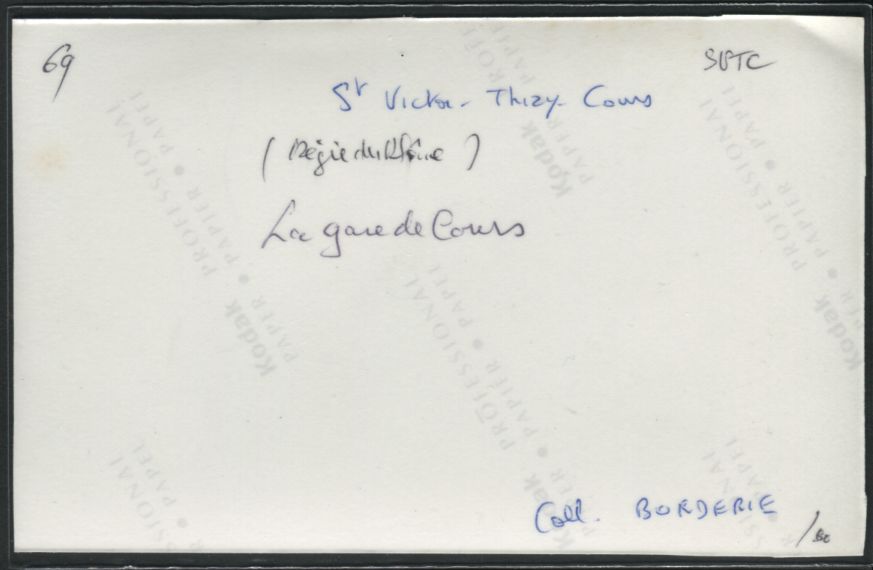 69
SVTC
St Victor - Thizy - Cours
(Régie du Rhône)
La gare de Cours
Coll. BORDERIE
PROFESSIONAL
PAPIER • PAPEL
Kodak
PAPIER • PAPER